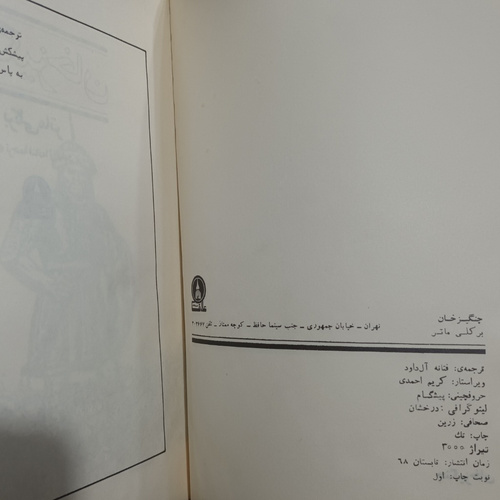 ترجمه‌
پیشکش
به پاس
چنگیزخان
برکلی ماتر
تهران ــ خیابان جمهوری ــ جنب سینما حافظ ــ کوچه ممتاز ــ تلفن
ترجمه‌ی: فتانه آل‌داود
ویراستار: کریم احمدی
حروفچینی: پیشگام
لیتوگرافی: درخشان
صحافی: زرین
چاپ: تك
تیراژ ۳۰۰۰
زمان انتشار: تابستان ۶۸
نوبت چاپ: اول